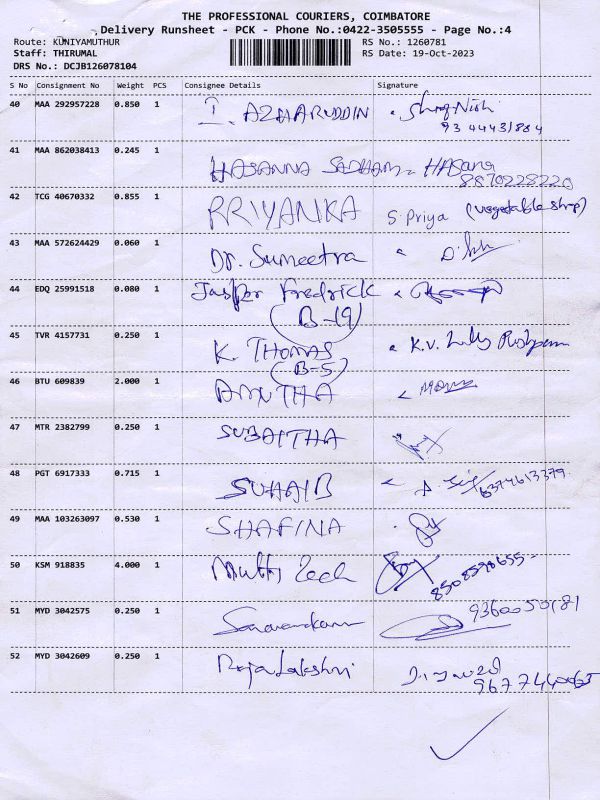 THE PROFESSIONAL COURIERS, COIMBATORE
Delivery Runsheet - PCK - Phone No.:0422-3505555 - Page No.:4
Route: KUNIYAMUTHUR RS No.: 1260781
Staff: THIRUMAL RS Date: 19-Oct-2023
DRS No.: DCJB126078104
S No Consignment No Weight PCS Consignee Details Signature
40 MAA 292957228 0.850 1 I. AZHARUDDIN
41 MAA 862038413 0.245 1
HASANNA
8870228220
42 TCG 40670332 0.855 1 PRIYANKA S. Priya (vegetable shop)
43 MAA 572624429 0.060 1 Dr. Sumeetra
44 EDQ 25991518 0.080 1 Jasper Fredrick
(B-19)
45 TVR 4157731 0.250 1 K. THOMAS K.V.
(B-5)
46 BTU 609839 2.000 1
47 MTR 2382799 0.250 1 SUBAITHA
48 PGT 6917333 0.715 1 SUHAIB 6374613379
49 MAA 103263097 0.530 1 SHAFINA
50 KSM 918835 4.000 1 8508590655
51 MYD 3042575 0.250 1
52 MYD 3042609 0.250 1 RajaLakshmi